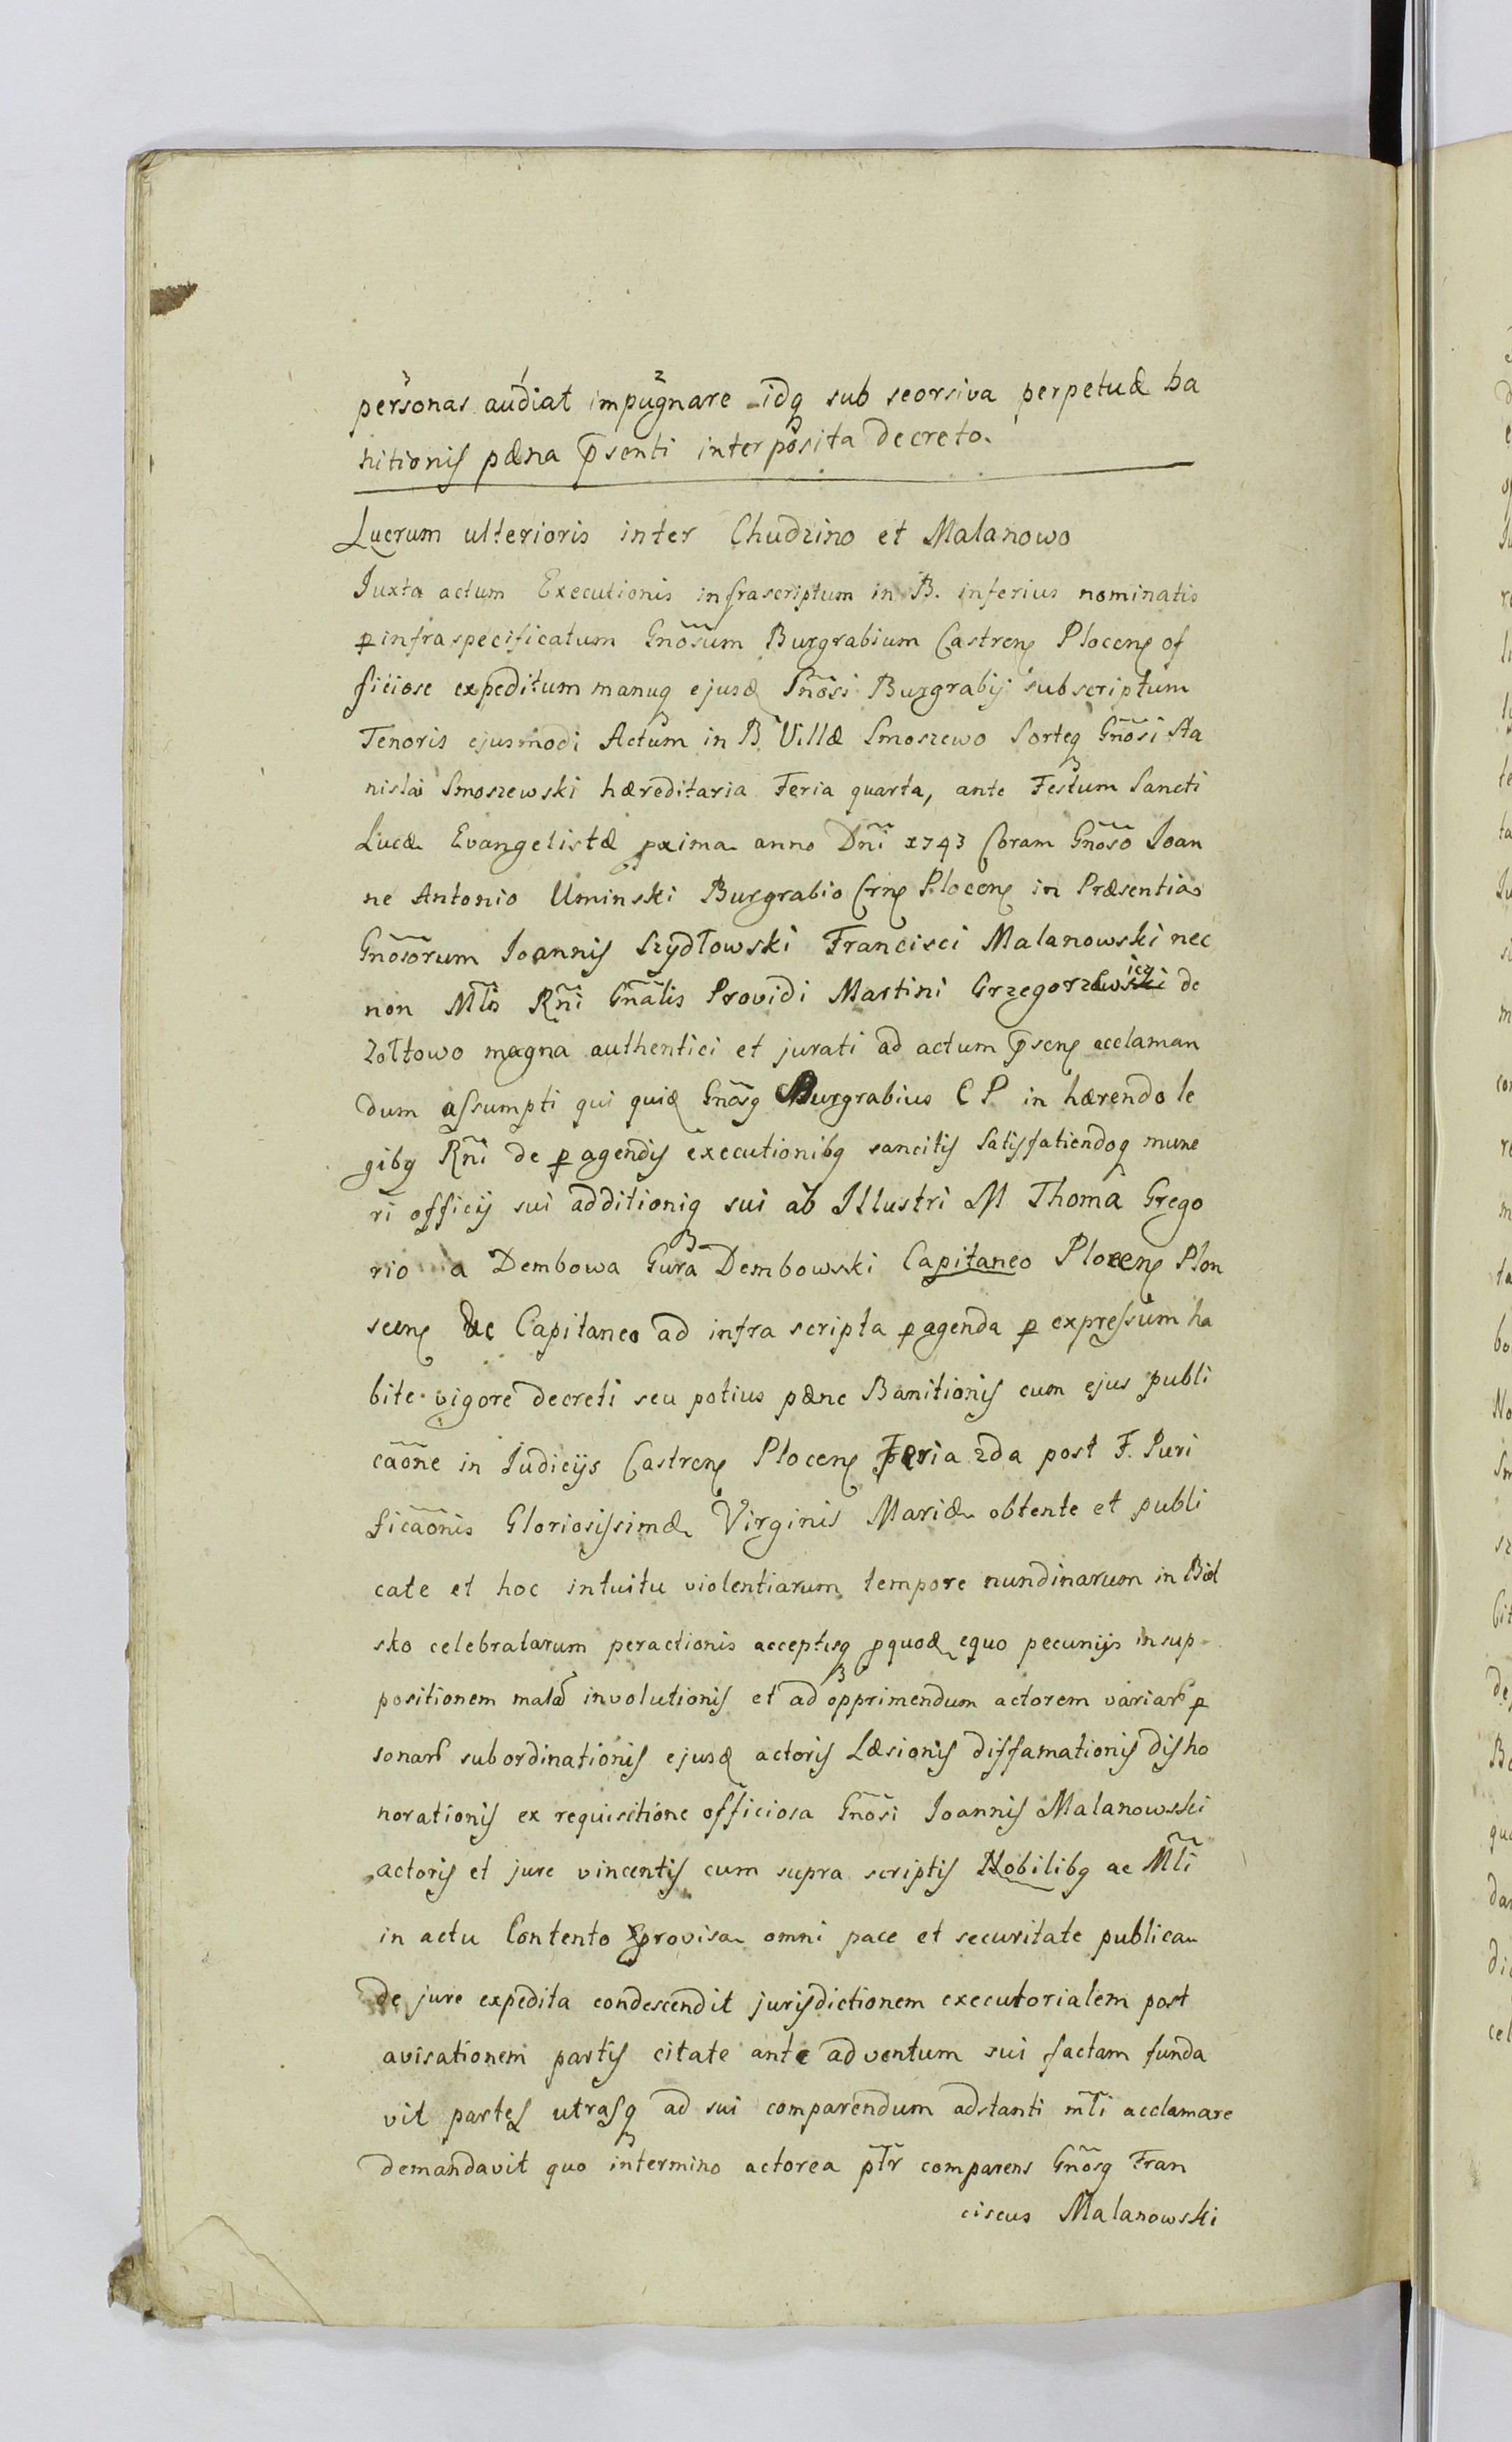 personas audiat impugnare idq sub seorsiva perpetuæ ba
nitionis pæna p̄senti interposita decreto.
Lucrum ulterioris inter Chudzino et Malanowo
Iuxta actum Executionis infrascriptum in B. inferius nominatis
p infra specificatum Gnõsum Burgrabium Castren Plocen of
ficiose expeditum manuq ejusd Gnõsi Burgrabij subscriptum
Tenoris ejusmodi Actum in B Villæ Smoszewo Sorteq Gnõsi Sta
nislai Smoszewski hæreditaria Feria quarta, ante Festum Sancti
Lucæ Evangelistæ pxima anno Dni 1743 Coram Gnõso Ioan
ne Antonio Uminski Burgrabio Crn Plocen in Præsentia
Gnõsorum Ioannis Szydłowski Francisci Malanowski nec
non Mlis Rñi Gñalis Providi Martini Grzegorzewicz de
Zołtowo magna authentici et jurati ad actum p̄sen acclaman
dum assumpti qui quid Gnõsq Burgrabius C P in hærendo le
gibq Rñi de p agendis executionibq sancitis Satisfatiendoq mune
ri officij sui additioniq sui ab Illustri M Thoma Grego
rio a Dembowa Gura Dembowski Capitaneo Plocen Plon
scen Vc Capitaneo ad infra scripta p agenda p expressum ha
bite vigore decreti seu potius pænc Banitionis cum ejus publi
cãone in Iudicijs Castren Plocen Feria 2da post F. Puri
ficãonis Gloriosissimæ Virginis Mariæ obtente et publi
cate et hoc intuitu violentiarum tempore nundinarum in Biel
sko celebratarum peractionis acceptisq pquod equo pecunijs in sup
positionem malæ involutionis et ad opprimendum actorem variar p
sonar subordinationis ejusd actoris Læsionis diffamationis disho
norationis ex requisitione officiosa Gnõsi Ioannis Malanowski
actoris et jure vincentis cum supra scriptis Nobilibq ac Mli
in actu Contento provisa omni pace et securitate publica
de jure expedita condescendit jurisdictionem executorialem post
avisationem partis citate ante adventum sui factam funda
vit partes utrasq ad sui comparendum adstanti mli acclamare
demandavit quo intermino actorea ptr comparens Gnõsq Fran
ciscus Malanowski